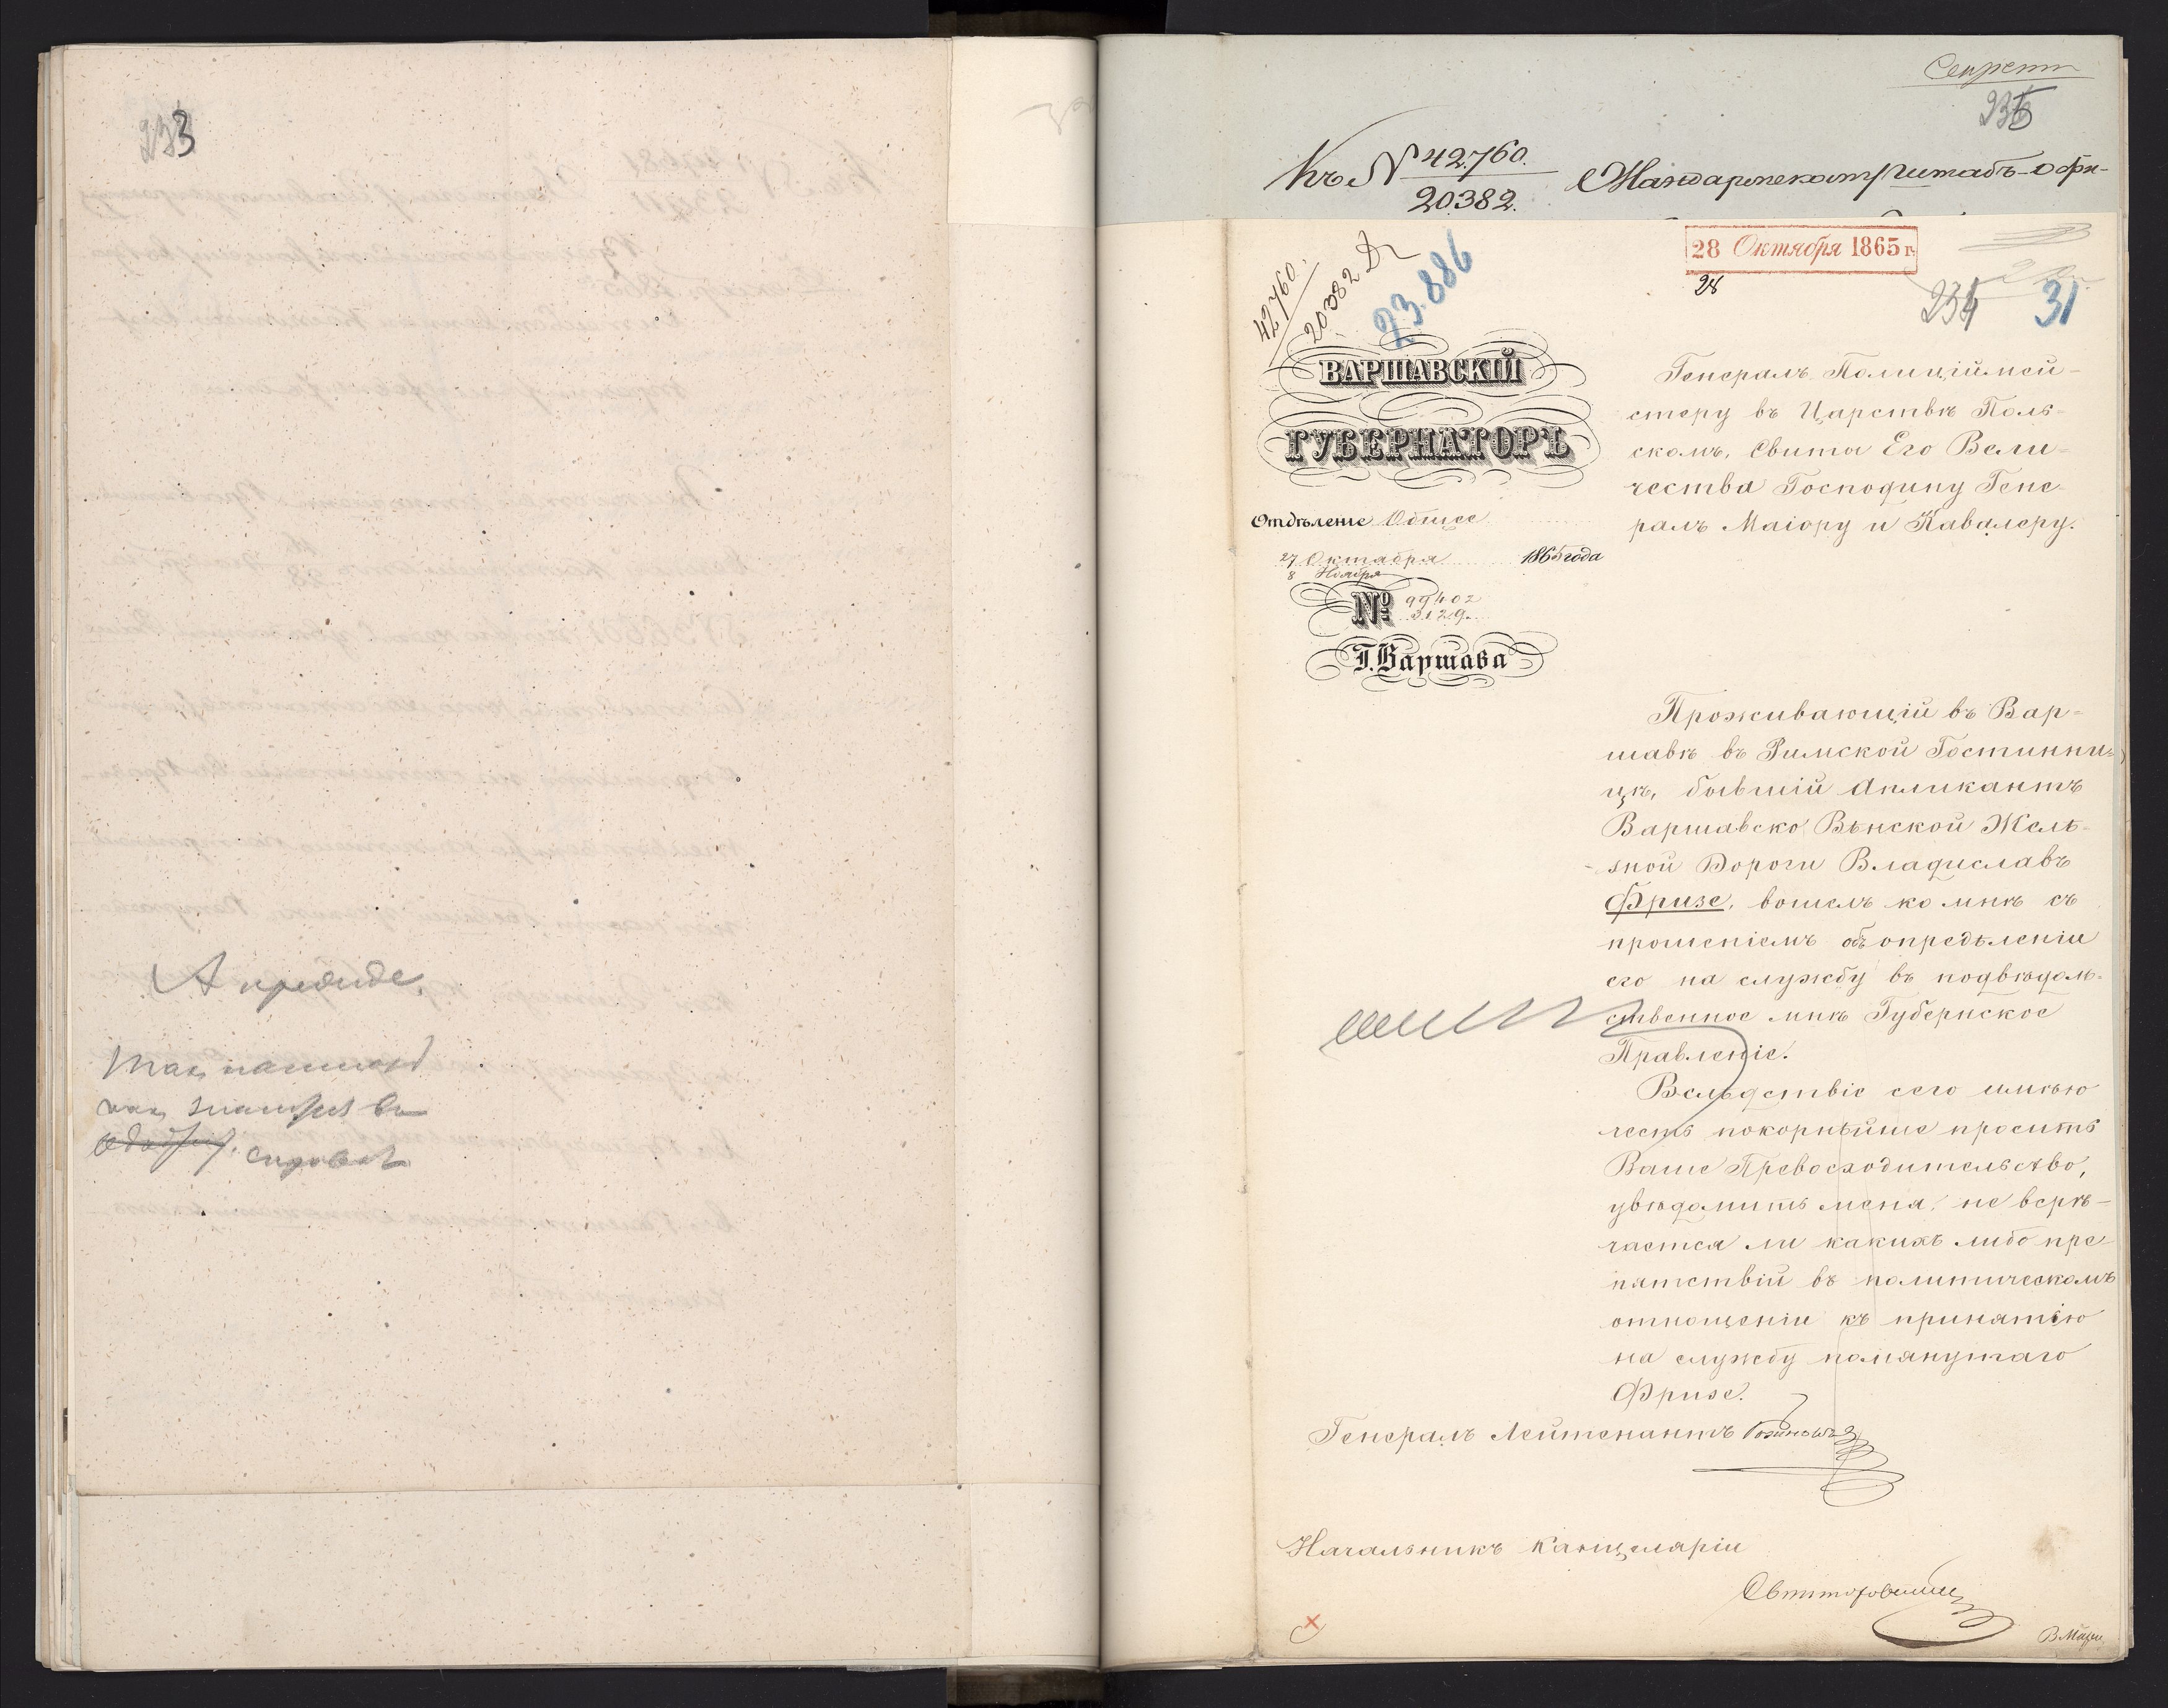 233
А прежде,
Секретн
235
Къ № 42760.
20382.
Жандармскому Штабъ-Офи-
28 Октября 1865 г.
28
42760.
20382
23.886
234
31
ВАРШАВСКІЙ
ГУБЕРНАТОРЪ
Отдѣленіе Общее
27 Октября 1865 года
8 Ноября
№ 99402
3129.
Г. Варшава
Генералъ Полиціймей-
стеру въ Царствѣ Поль-
скомъ, Свиты Его Вели-
чества Господину Гене-
ралъ Маіору и Кавалеру.
Проживающій въ Вар-
шавѣ въ Римской Гостинни-
цѣ, бывшій Апликантъ
Варшавско Вѣнской Желѣ-
зной Дороги Владиславъ
Фризе, вошелъ ко мнѣ съ
прошеніемъ объ опредѣленіи
его на службу въ подвѣдом-
ственное мнѣ Губернское
Правленіе.
Вслѣдствіе сего имѣю
честь покорнѣйше просить
Ваше Превосходительство,
увѣдомить меня, не встрѣ-
чается ли какихъ либо пре-
пятствій въ политическомъ
отношеніи къ принятію
на службу помянутаго
Фризе.
Генералъ Лейтенантъ
Начальникъ Канцеляріи